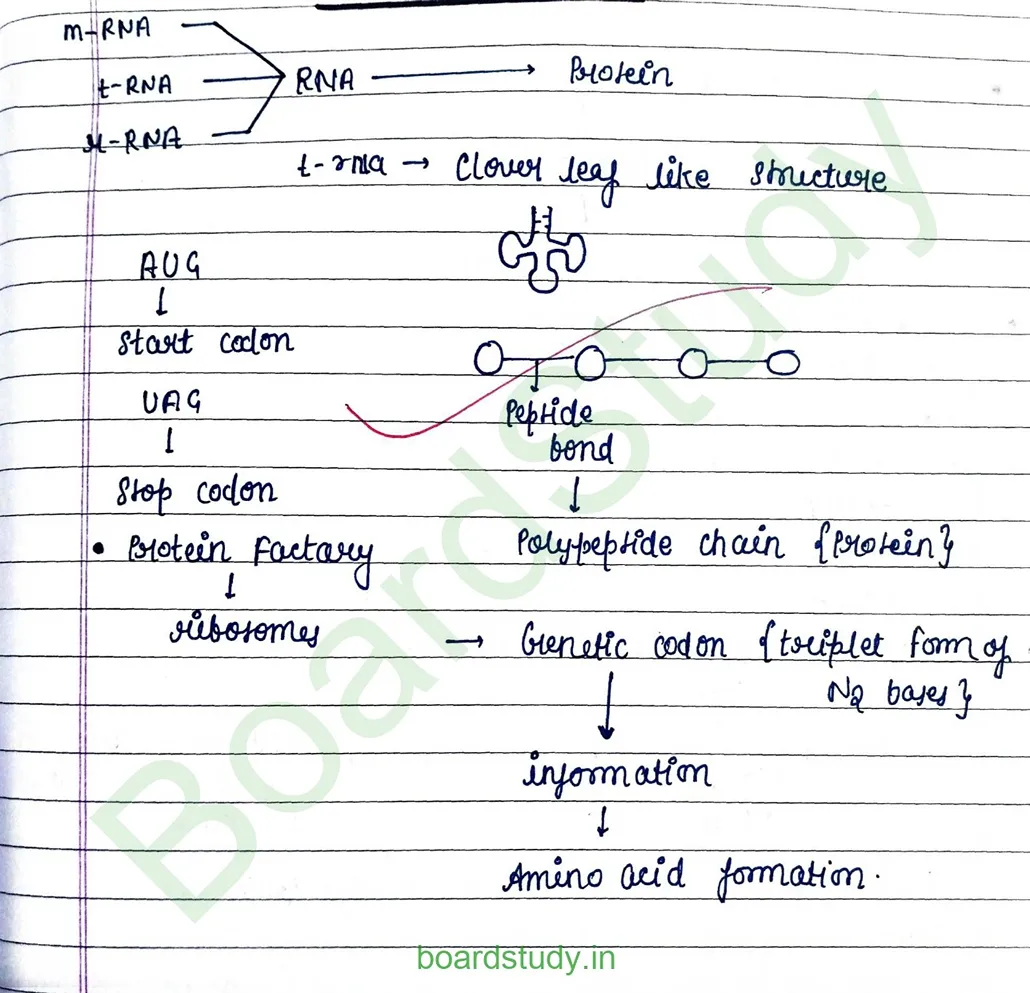 m-RNA
t-RNA
RNA → Protein
r-RNA
t-rna → Clover leaf like structure
AUG
↓
Start codon
Peptide
bond
UAG
↓
↓
Stop codon
• Protein Factory
Polypeptide chain {Protein}
↓
ribosomes
→ Genetic codon {triplet form of
N2 bases}
↓
information
↓
Amino acid formation.
BoardStudy
boardstudy.in